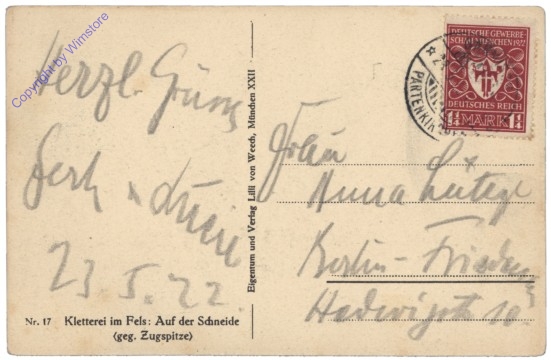 Copyright by Wimstore
Herzl. Grüße
23 5. 22.
Nr. 17 Kletterei im Fels: Auf der Schneide
(geg. Zugspitze)
Eigentum und Verlag Lilli von Weech, München XXII
DEUTSCHE GEWERBE
SCHAU MÜNCHEN 1922
DEUTSCHES REICH
1¼ MARK 1¼
PARTENKIRCHEN
Frau
Anna
Berlin-Frieden